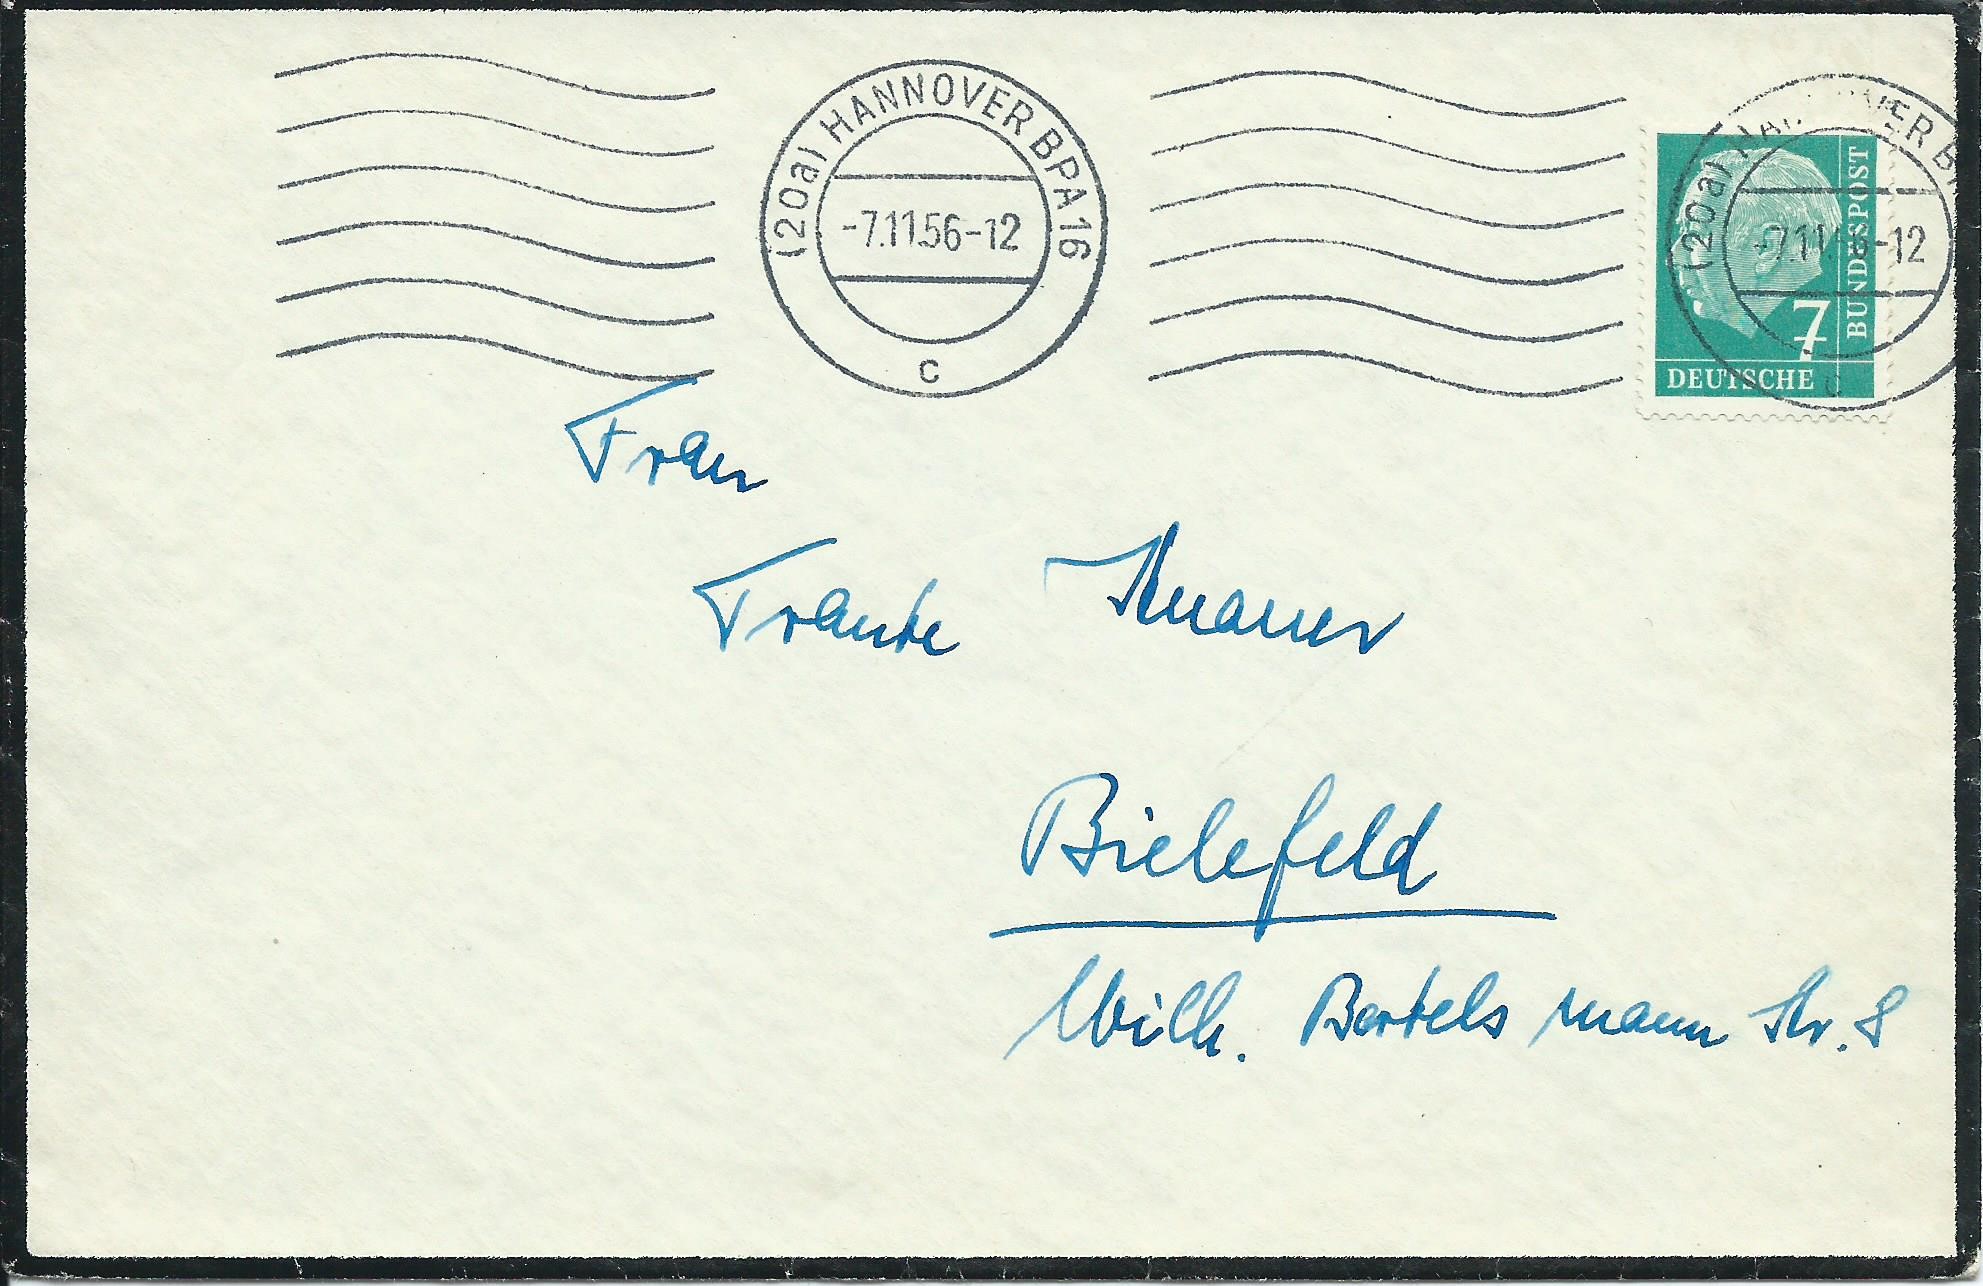 (20a) HANNOVER BPA 16
-7.11.56-12
c
(20a) HANNOVER B
-7.11.56-12
c
7
DEUTSCHE
BUNDESPOST
Frau
Knauer
Bielefeld
Wilh. Bertels mann Str. 8